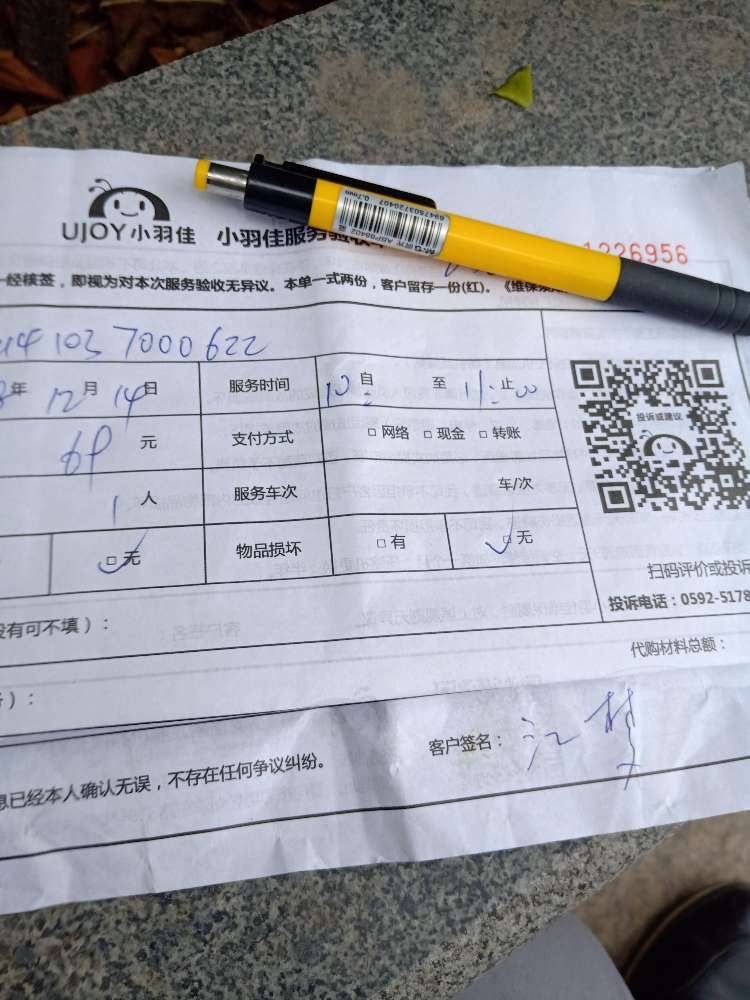 UJOY小羽佳 小羽佳服务验收单
1226956
一经核签，即视为对本次服务验收无异议。本单一式两份，客户留存一份(红)。《维保条
14103 7000622
年 12月 14日 服务时间 10:自 至 11:00止
69 元 支付方式 □网络 □现金 □转账
1 人 服务车次 车/次
□无 物品损坏 □有 □无
投诉或建议
扫码评价或投诉
投诉电话：0592-5178
没有可不填）：
代购材料总额：
）：
客户签名：江梦
息已经本人确认无误，不存在任何争议纠纷。
M&G 晨光 ABP88402 蓝
6947503720407 0.7mm